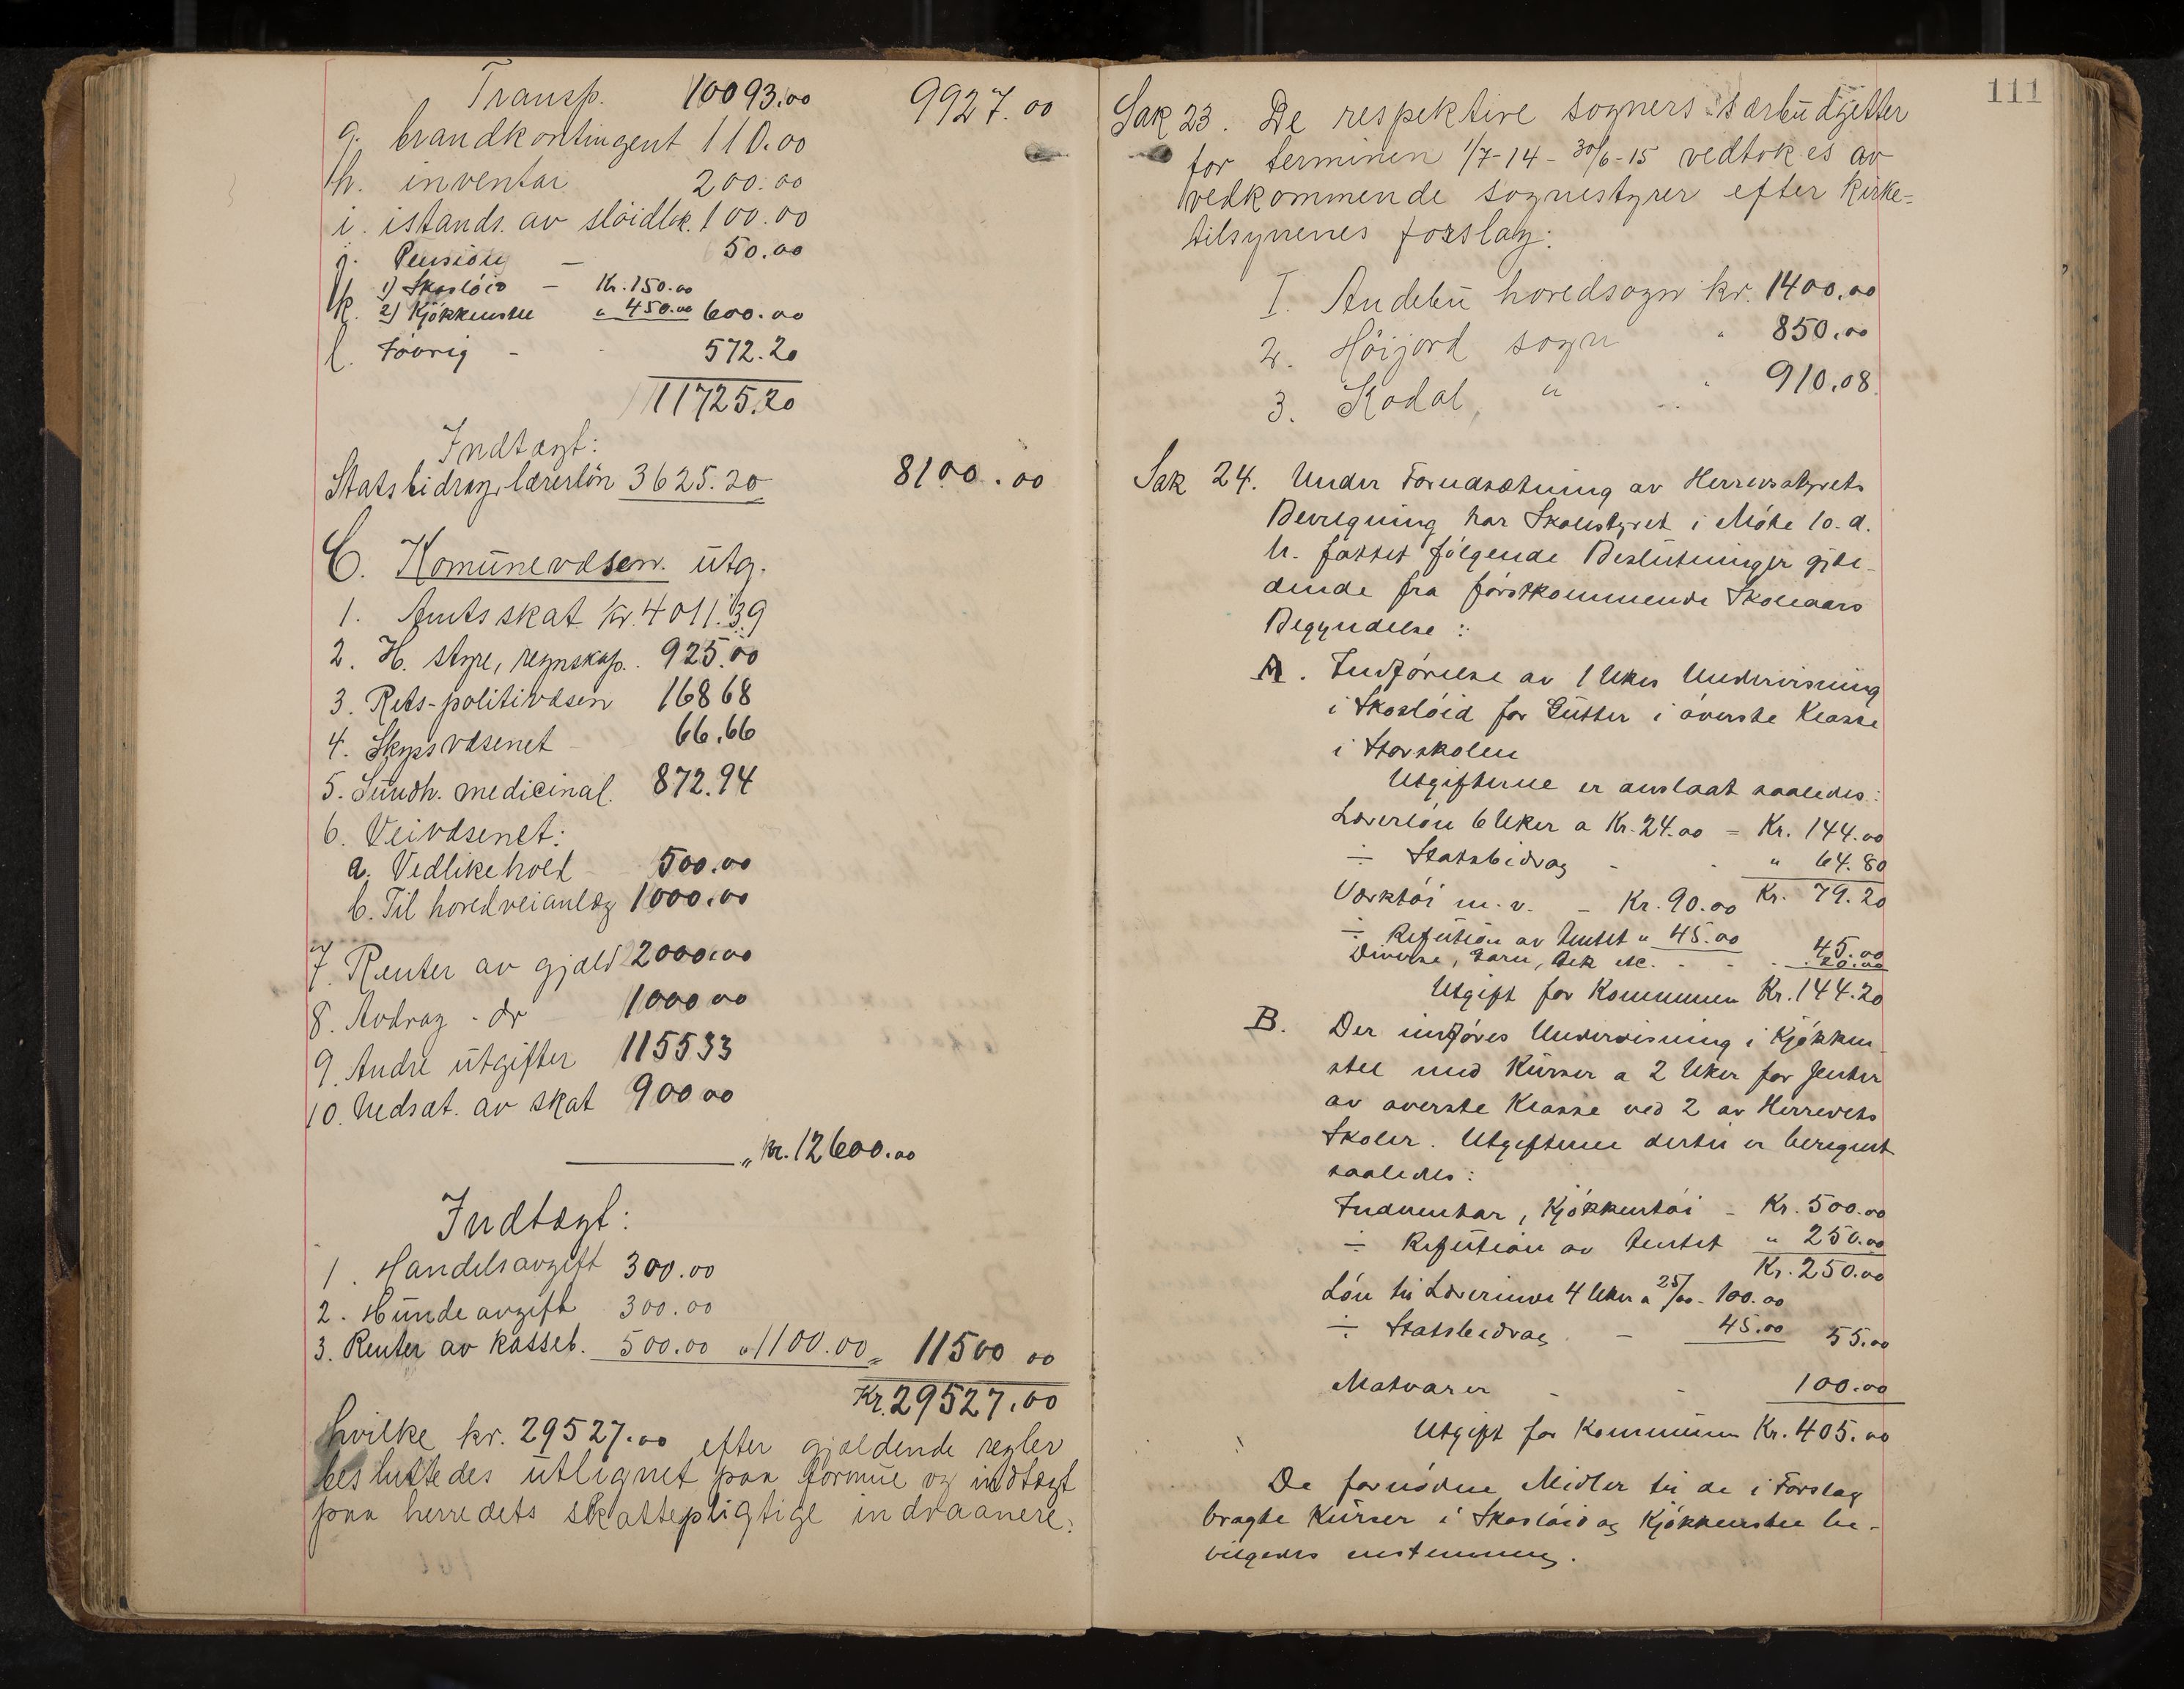 Transp. 10093.00 9927.00
g. brandkontingent 110.00
h. inventar 200.00
i. istands. av slöidlok. 100.00
j. Pension — 50.00
k. 1) Skoslöid — Kr. 150.00
2) Kjökkenstel " 450.00 600.00
l. Iövrig - 572.20
11725.20
Indtægt:
Statsbidrag, lærerlön 3625.20 8100.00
C. Komünevæsen. ütg.
1. Amtsskat kr. 4011.39
2. H. styre, regnskap. 925.00
3. Rets-politivæsen 168 68
4. Skyssvæsenet 66.66
5. Sündh. medicinal. 872.94
6. Veivæsenet:
a. Vedlikehold 500.00
b. Til hovedveianlæg 1000.00
7. Renter av gjæld 2000.00
8. Avdrag - do 1000 00
9. Andre ütgifter 1155 33
10. Nedsæt. av skat 900 00
" Kr. 12600.00
Indtægt:
1. Handelsavgift 300.00
2. Hündeavgift 300.00
3. Renter av kasseb. 500.00 " 1100.00 = 11500 00
Kr. 29527.00
hvilke kr. 29527.00 efter gjældende regler
besluttedes ütlignet paa formüe og indtægt
paa herredets skattepligtige indvaanere.
111
Sak 23. De respektive sogners særbüdgetter
for terminen 1/7-14 - 30/6-15 vedtokes av
vedkommende sognestyrer efter kirke-
tilsynenes forslag:
I. Andebü hovedsogn kr. 1400.00
2. Höijord sogn " 850.00
3. Kodal, " " 910.08
Sak 24. Under Forudsætning av Herredsstyrets
Bevilgning har Skolestyret i Möte 10. d.
h. fattet fölgende Beslütninger gjel-
dende fra förstkommende Skoleaars
Begyndelse :
A. Indförelse av 1 Ukes Undervisning
i Skoslöid for Gütter i överste Klasse
i Storskolen
Utgifterne er anslaat saaledes:
Lærerlön 6 Uker a Kr. 24.00 = Kr. 144.00
÷ Statsbidrag - - " 64.80
Værktöi m. v. - Kr. 90.00 Kr. 79.20
÷ Refütion av Amtet " 45.00 45.00
Diverse, Garn, Bek etc. - - 20.00
Utgift for Kommunen Kr. 144.20
B. Der indföres Undervisning i Kjökken-
stel med Kürser a 2 Uker for Jenter
av överste Klasse ved 2 av Herredets
Skoler. Utgifterne dertil er beregnet
saaledes:
Indventar, Kjökkentöi - Kr. 500.00
÷ Refütion av Amtet " 250.00
Kr. 250.00
Lön til Lærerinde 4 Uker a 25/00 - 100.00
÷ Statsbidrag - 45.00 55.00
Matvarer - - 100.00
Utgift for Kommünen Kr. 405.00
De fornödne Midler til de i Forslag
bragte Kürser i Skoslöid og Kjökkenstel be-
vilgedes enstemmig.